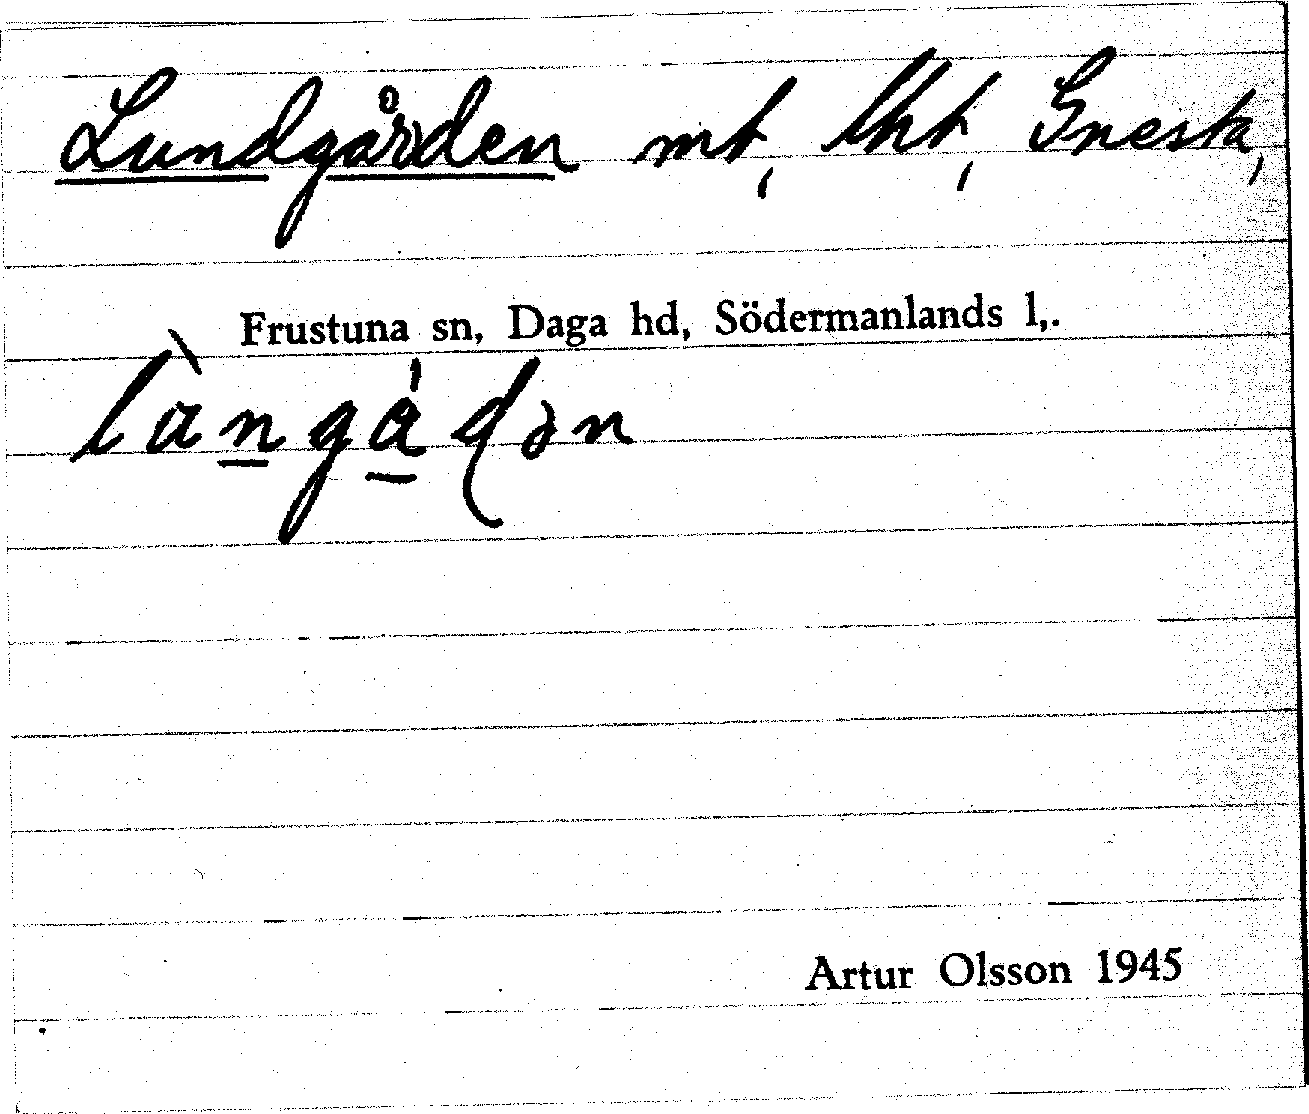 Lundgården mt, lht, Gnesta,
Frustuna sn, Daga hd, Södermanlands l,.
Artur Olsson 1945